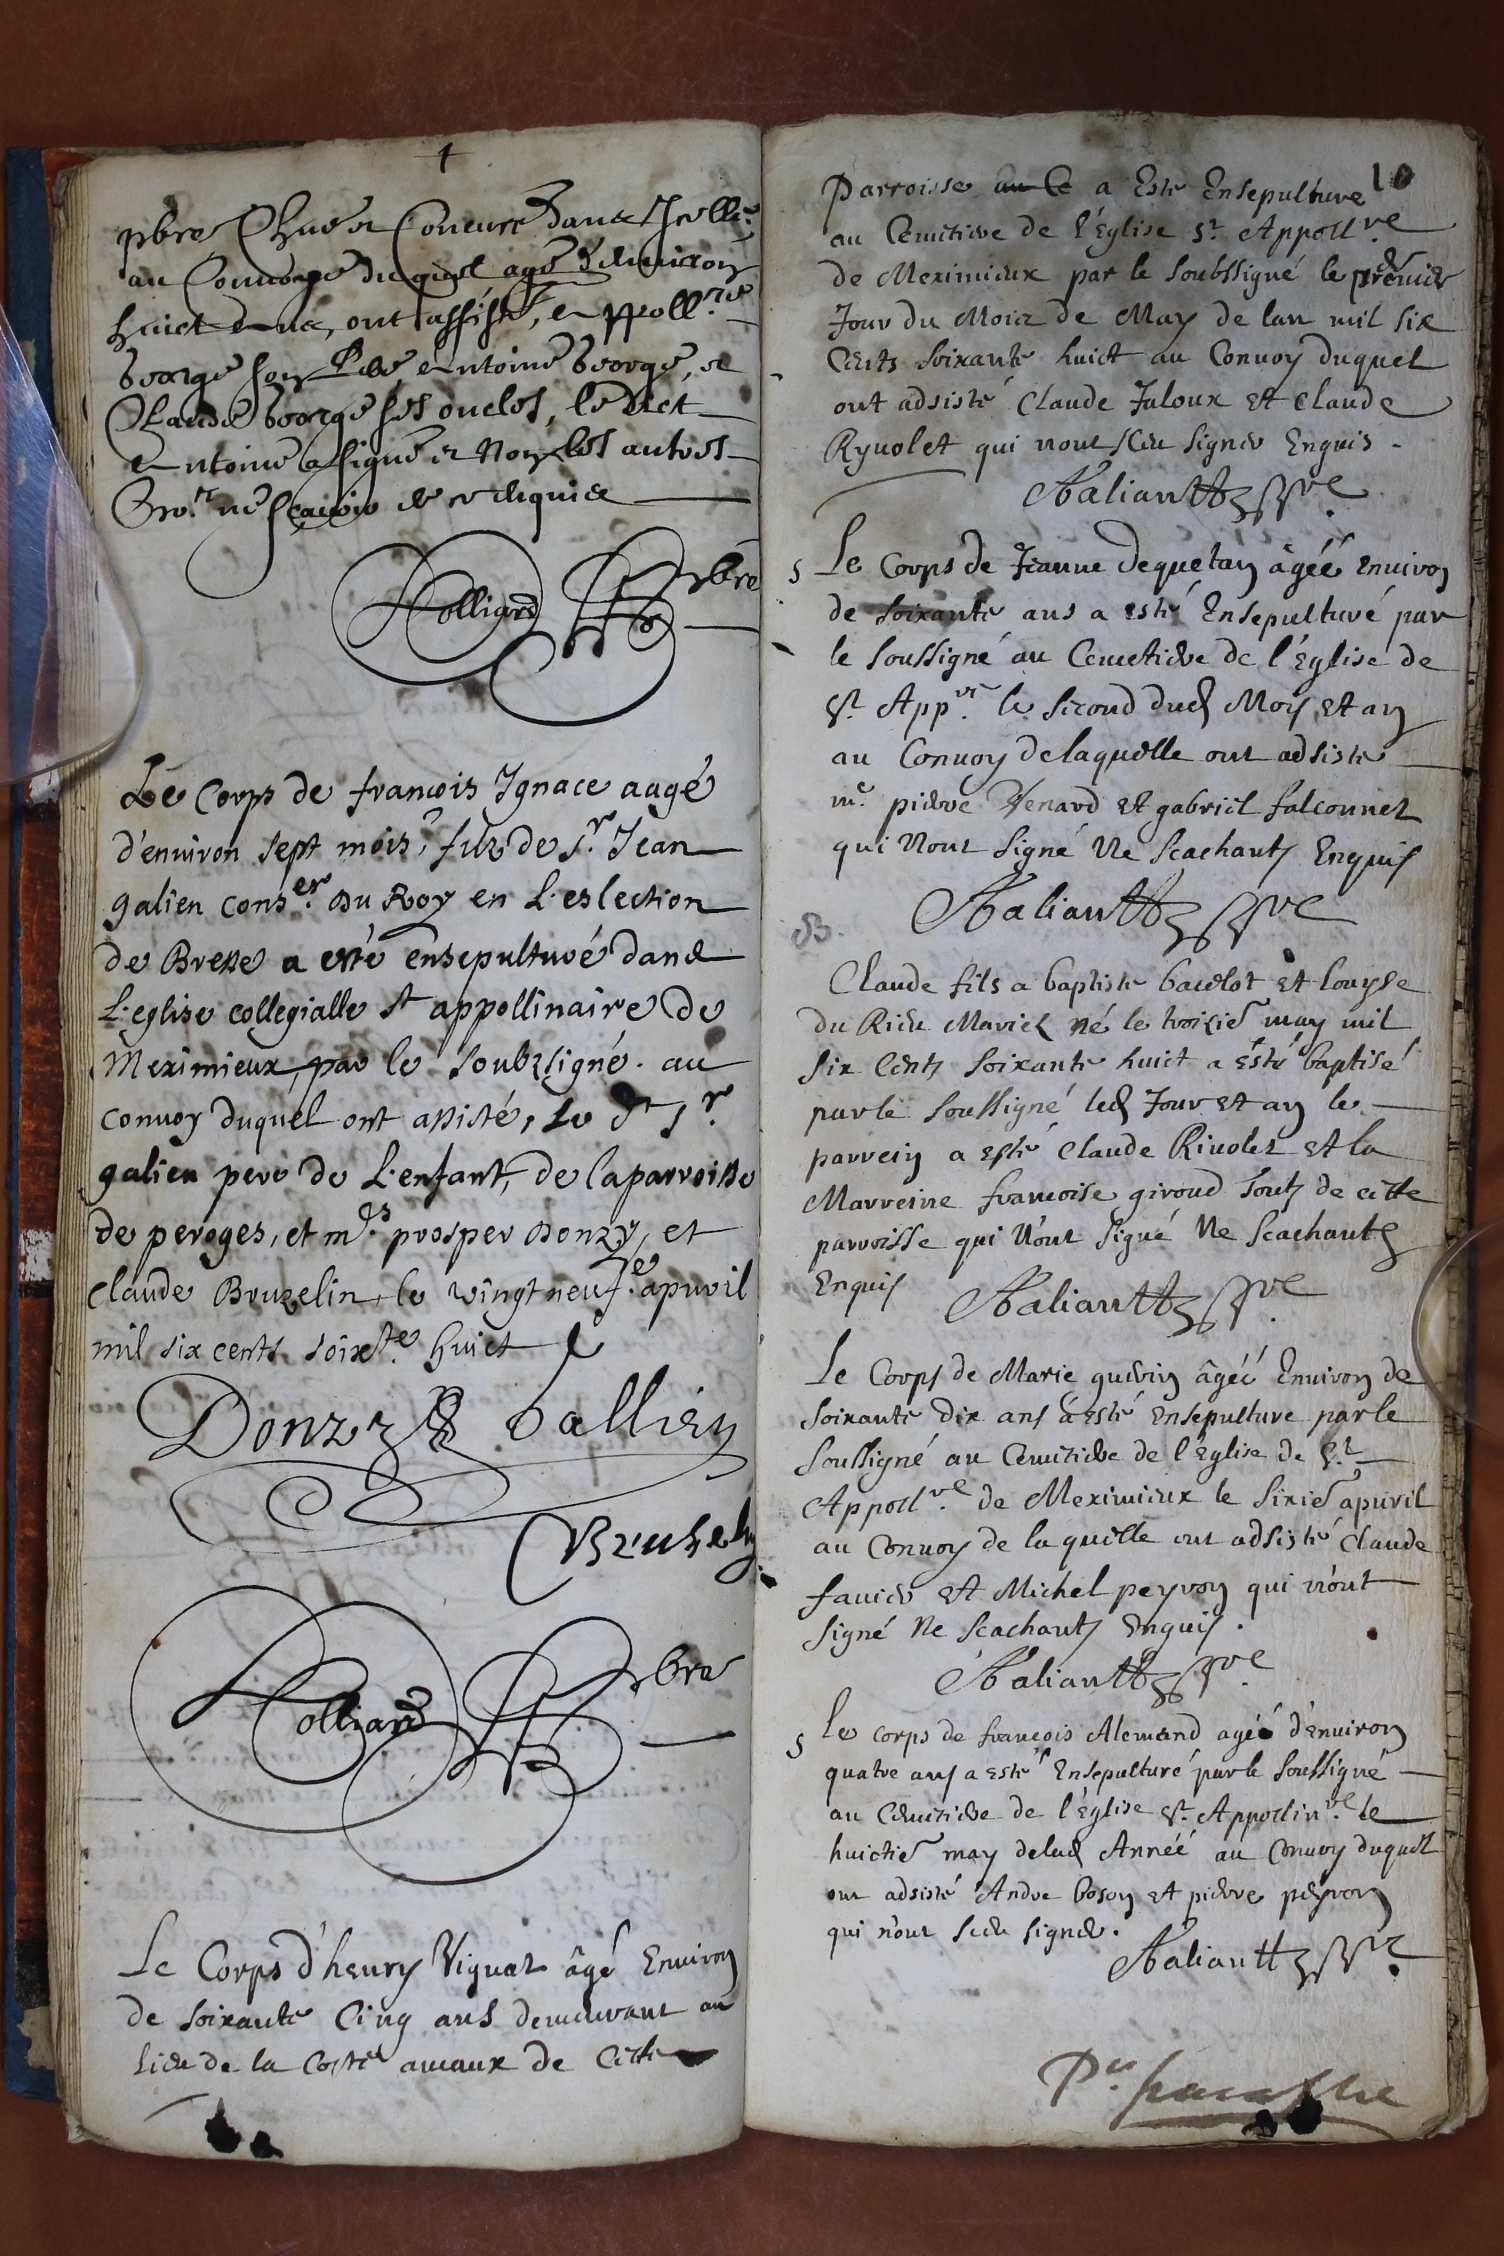 pbre Chne et Coneuré dans Icelle
au Convoye duquel agé d'environ
huict ans, ont assisté, Appoll.re
George son Pere Antoine George, et
Claude George ses oncles, le dict
Antoine a signé et Non les autres
pour ne scavoir de ce enquis
Colliard pbre
Le Corps de françois Ignace aagé
d'environ sept mois, filz de Sr. Jean
galien cons.er du Roy en L'eslection
de Bresse a esté ensepulturé dans
L'eglise collegialle St appollinaire de
Meximieux, par le soubzsigné. au
convoy duquel ont assisté, Le dt Sr.
galien pere de L'enfant, de la parroisse
de peroges, et m.rs prosper Donzy, et
Claude Bruzelin, le vingt neuf.e apuril
mil six cents soix.te huict
Donzy Gallien
Bruzelin
Colliard pbre
Le Corps d'henry Vignat âgé Environ
de soixante Cinq ans demeurant au
Lieu de la Coste amaux de Cette
10
Parroisse a Esté Ensepulturé
au Cemitiere de l'Eglise St. Appoll.re
de Meximieux par le Soubssigné le premier
Jour du Mois de May de lan mil six
Cents soixante huict au Convoy duquel
ont adsisté Claude Jaloux Et Claude
Ryuolet qui n'ont sceu signer Enquis.
Valiantt
S Le Corps de Jeanne dequetan âgéé Enuiron
de soixante ans a esté Ensepulturé par
le soussigné au Cemetiere de l'Eglise de
St. App.re le second dud Mois et an
au Convoy de laquelle ont adsisté
m.e pierre Venard Et gabriel falconnet
qui n'ont signé Ne scachants Enquis
Valiantt
B.
Claude fils a baptiste bavelot Et Louyse
du Rieu Mariez né le troisie may mil
six Cents soixante huict a esté baptisé
par le soussigné led Jour et an le
parrein a esté Claude Riuolet et la
Marreine françoise giroud touts de cette
parroisse qui n'ont signé Ne scachants
Enquis Valiantt
Le Corps de Marie guerin âgéé Enuiron de
soixante dix ans a esté ensepulturé par le
soussigné au Cemitiere de l'Eglise de St.
Appoll.re de Meximieux le sixie apuril
au Convoy de laquelle ont adsisté Claude
fauier et Michel peyron qui n'ont
signé Ne scachants Enquis.
Valiantt
S Le corps de françois Alemand agéé d'enuiron
quatre ans a esté Ensepulturé par le soussigné
au Cemitiere de l'église St. Appollin.re le
huictie may delad Année au Convoy duquel
ont adsisté Andre boson et pierre peyron
qui n'ont sceu signer.
Valiantt